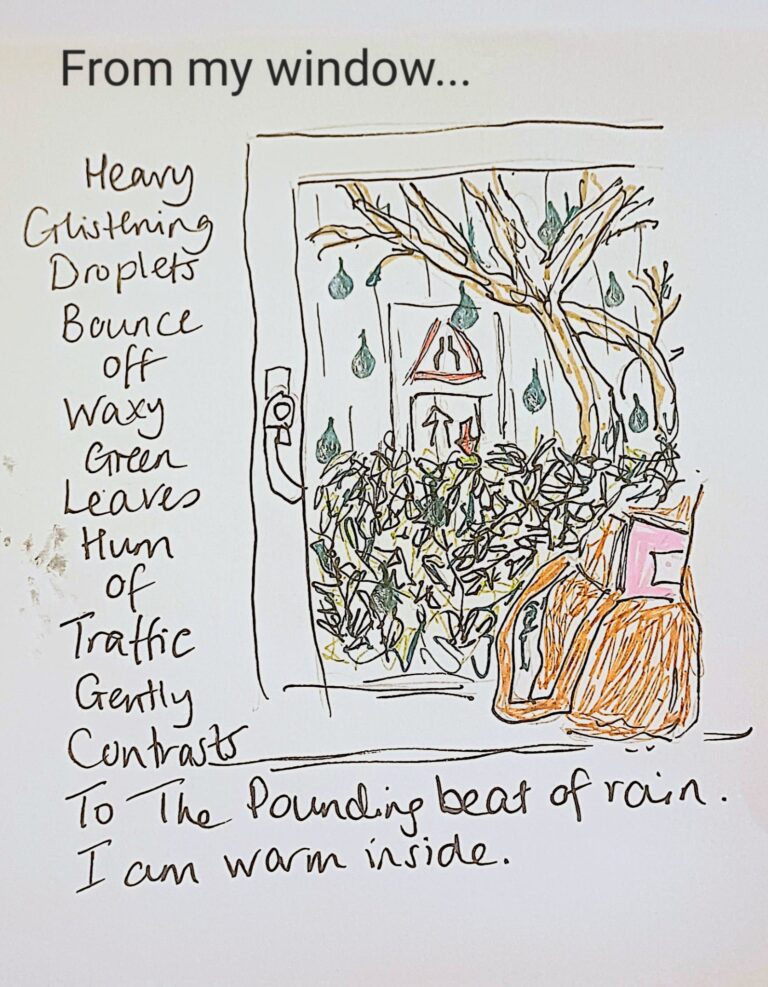 From my window...
Heavy
Glistening
Droplets
Bounce
off
Waxy
Green
Leaves
Hum
of
Traffic
Gently
Contrasts
To The Pounding beat of rain.
I am warm inside.